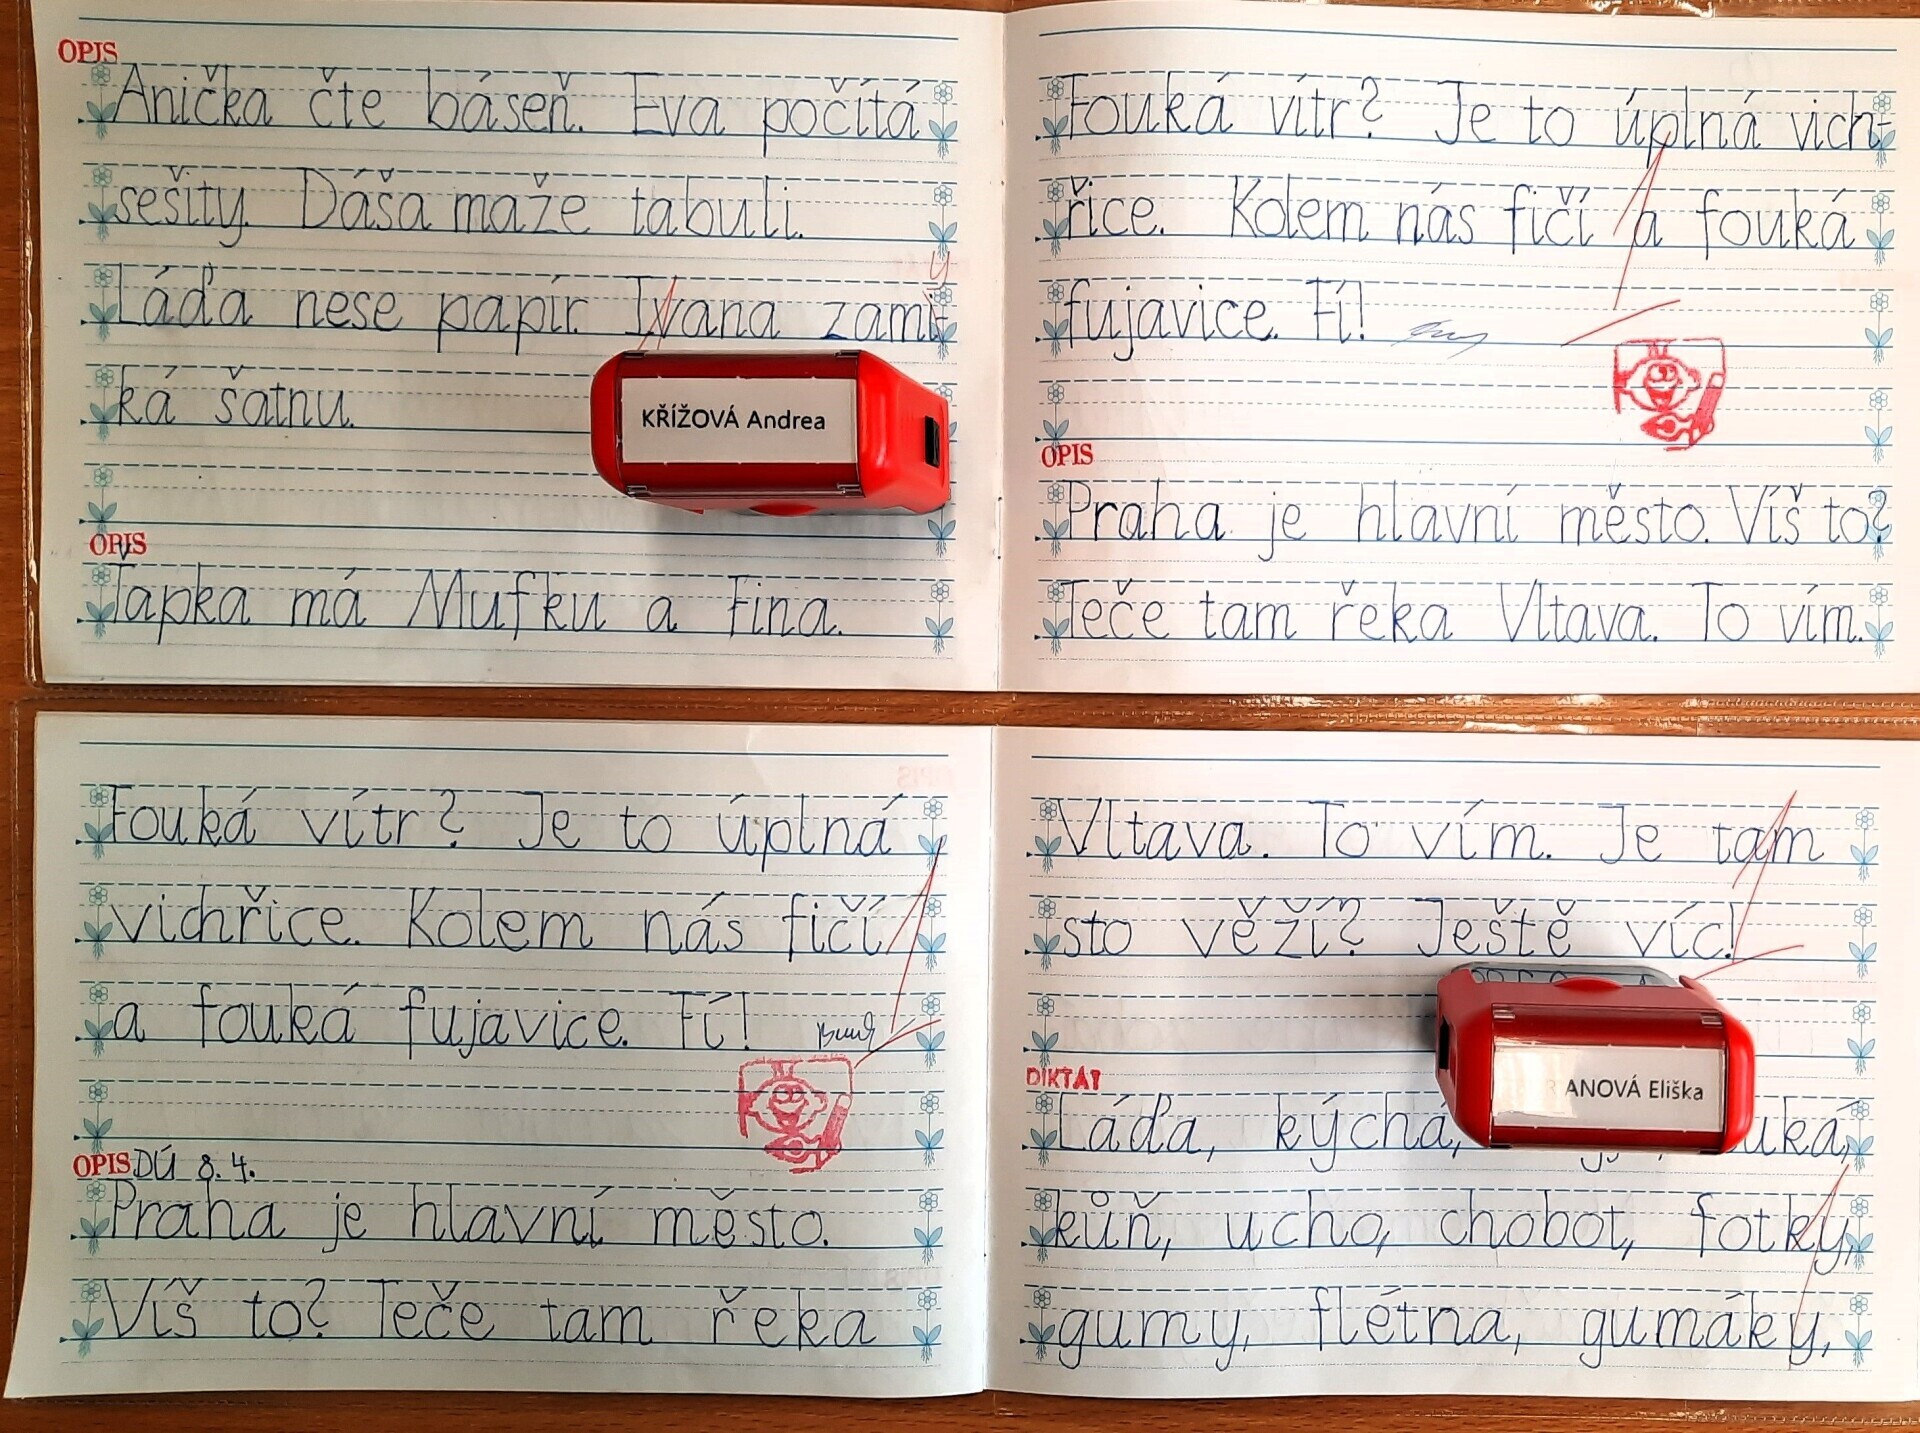 OPIS
Anička čte báseň. Eva počítá
sešity. Dáša maže tabuli.
y
Láďa nese papír. Ivana zami-
ká šatnu.
KŘÍŽOVÁ Andrea
OPIS
Ťapka má Mufku a Fina.
Fouká vítr? Je to úplná vich-
řice. Kolem nás fičí a fouká
fujavice. Fí!
OPIS
Praha je hlavní město. Víš to?
Teče tam řeka Vltava. To vím.
Fouká vítr? Je to úplná
vichřice. Kolem nás fičí
a fouká fujavice. Fí!
OPIS DÚ 8.4.
Praha je hlavní město.
Víš to? Teče tam řeka
Vltava. To vím. Je tam
sto věží? Ještě víc!
ANOVÁ Eliška
DIKTÁT
Láďa, kýchá,
kůň, ucho, chobot, fotky,
gumy, flétna, gumáky,